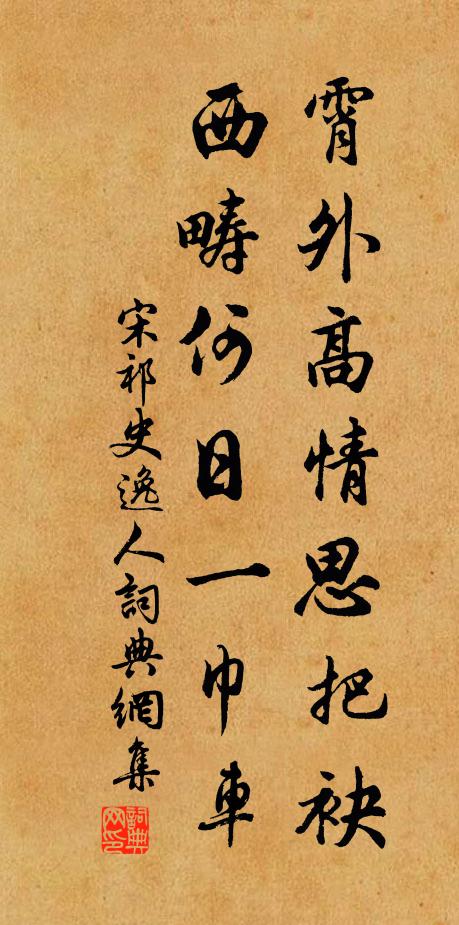 霄外高情思把袂
西疇何日一巾車
宋祁史逸人詞典網集
詞典网印